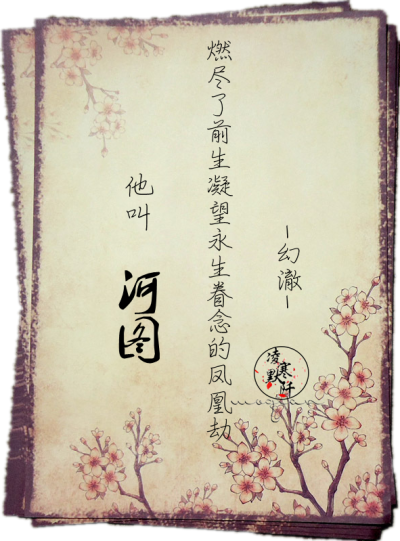 -幻澈-
燃尽了前生凝望永生眷念的凤凰劫
他叫
河图
凌寒
默阡